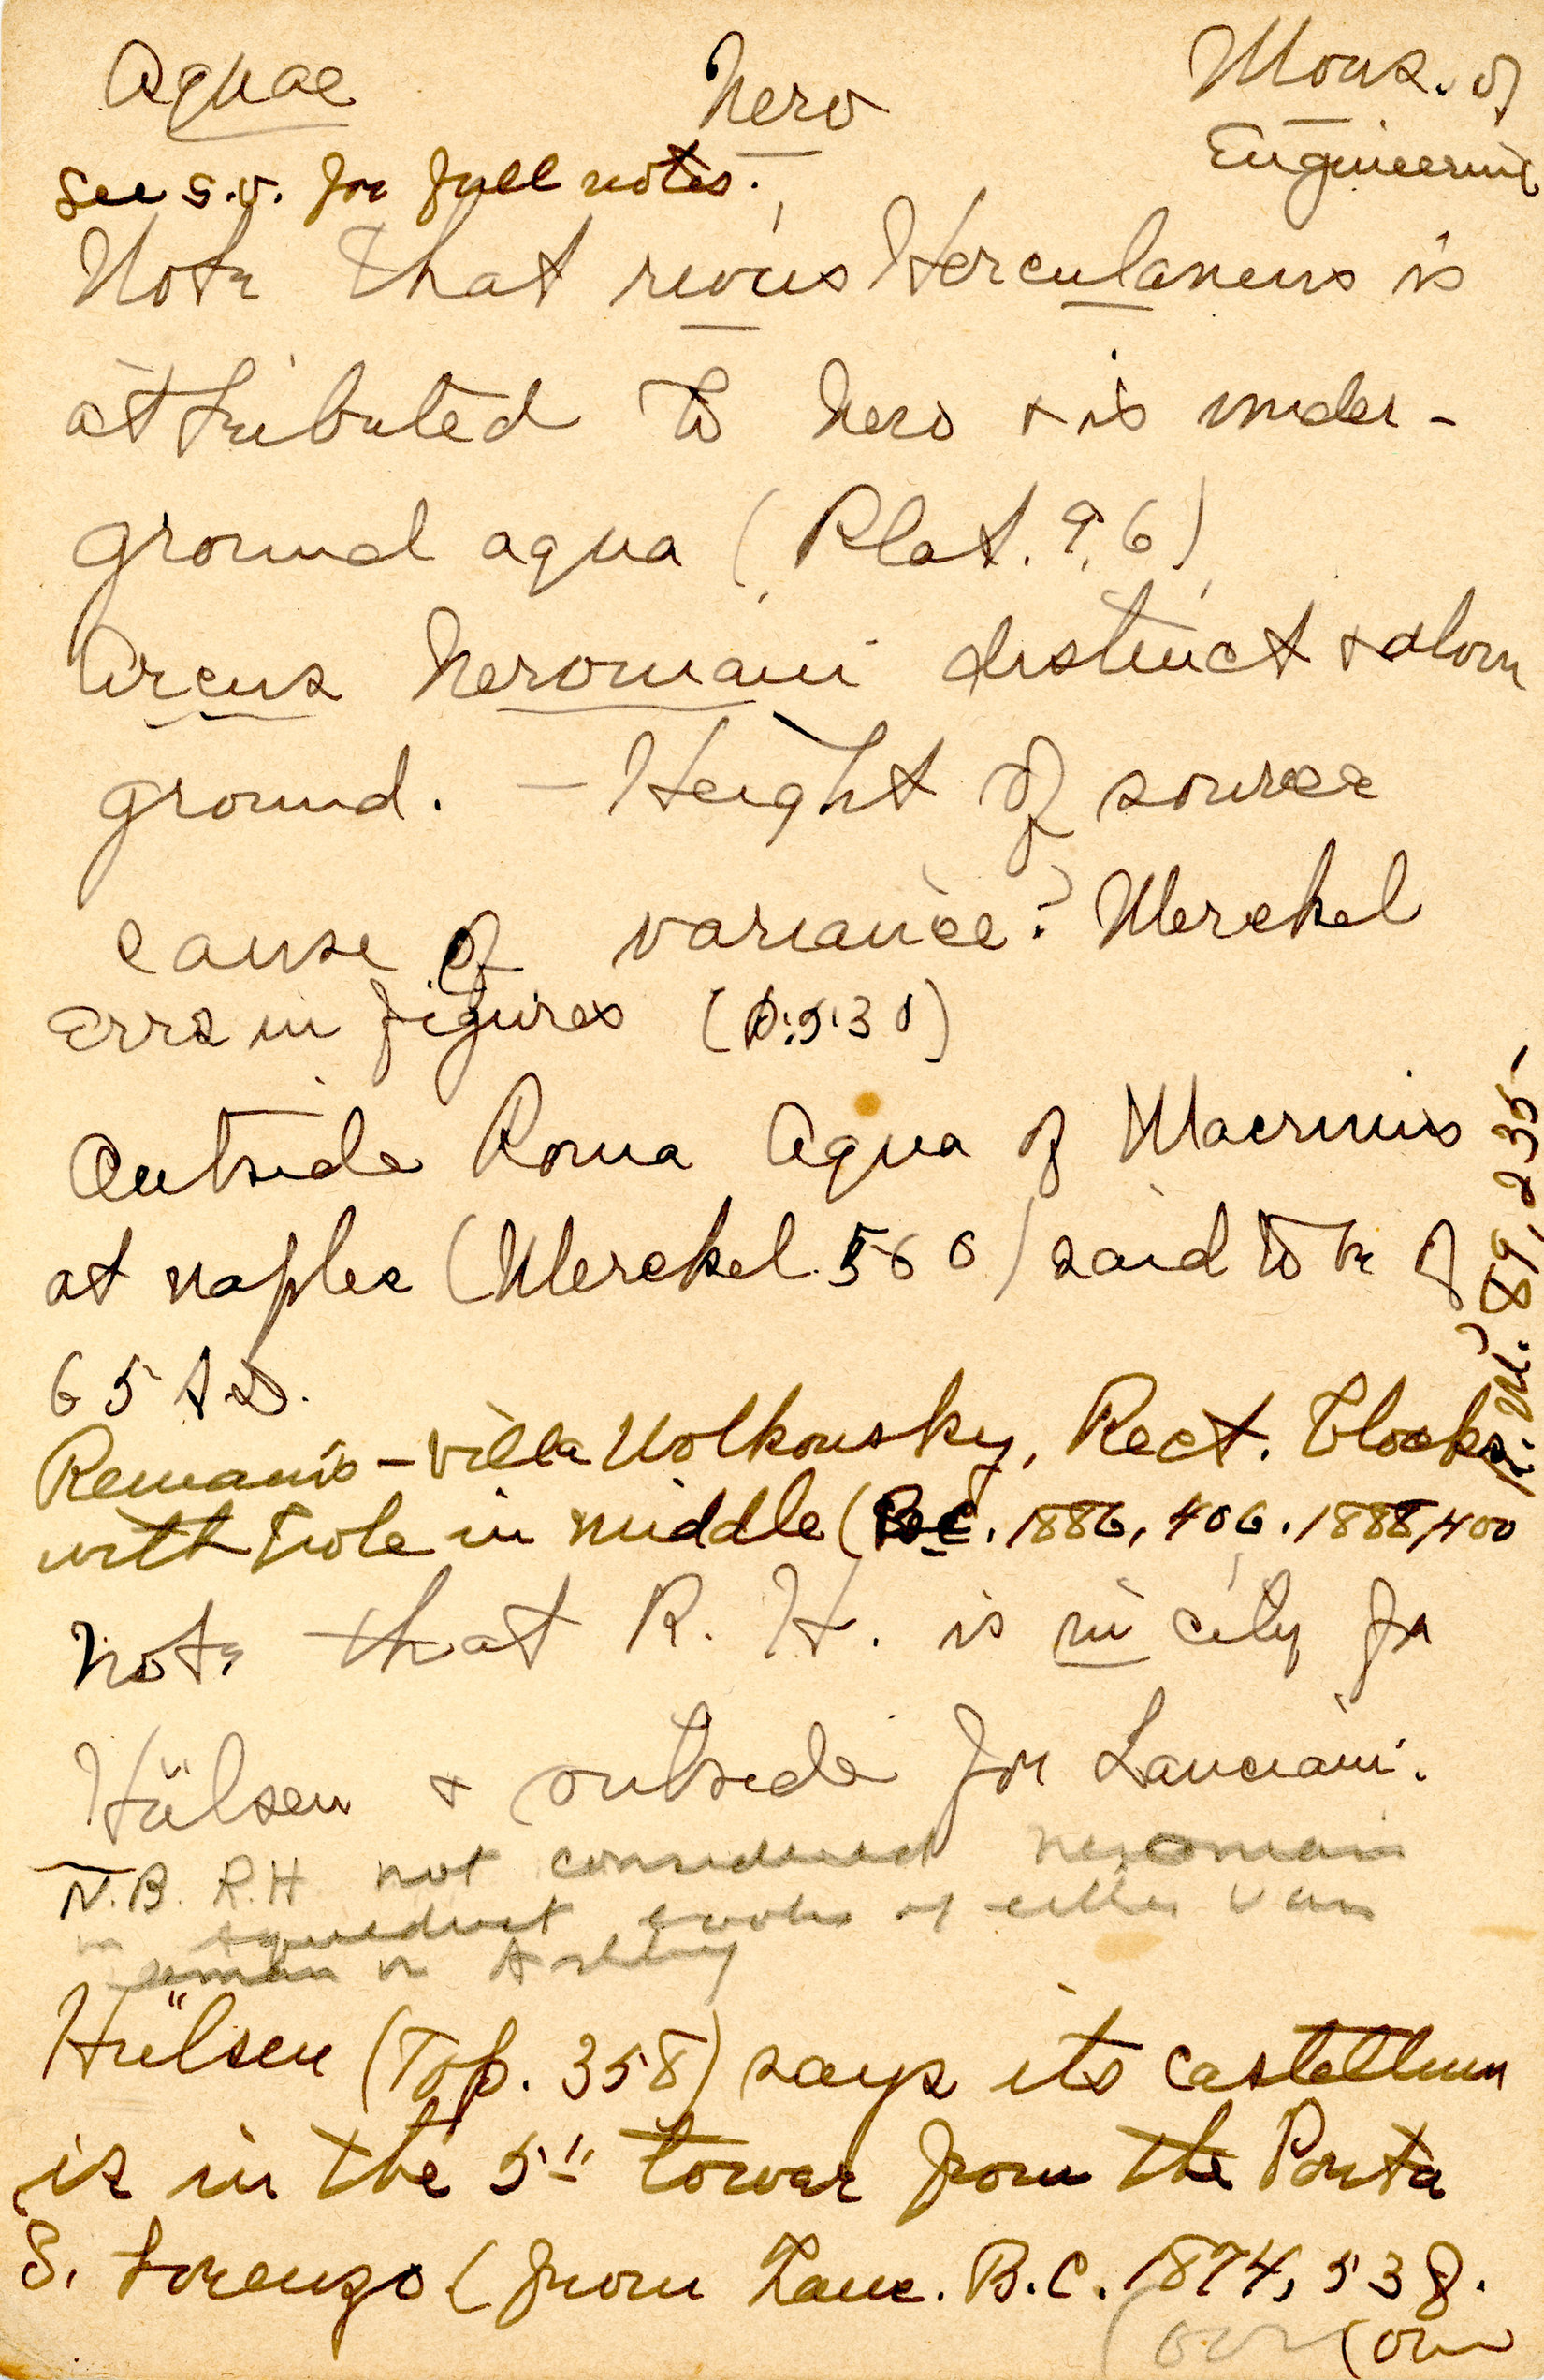 Aquae Nero Mons. of
Engineering
See s.v. for full notes.
Note that rivus Herculaneus is
attributed to Nero + is under-
ground aqua (Plat. 96)
Arcus Neroniani distinct + above
ground. — Height of source
cause of variance? Merckel
errs in figures (p. 530)
Outside Roma Aqua of Macrinus
at Naples (Merckel. 560) said to be of
65 A.D.
Remains – Villa Volkonsky, Rect. blocks
with hole in middle (B.C. 1886, 406. 1888, 400
R. M. 89, 235
Note that R. H. is in city for
Hülsen + outside for Lanciani.
N.B. R.H not considered Neronian
aqueduct of either Van
Deman or Ashby
Hülsen (Top. 358) says its castellum
is in the 5" tower from the Porta
S. Lorenzo (from Lanc. B.C. 1874, 538.
(over (over